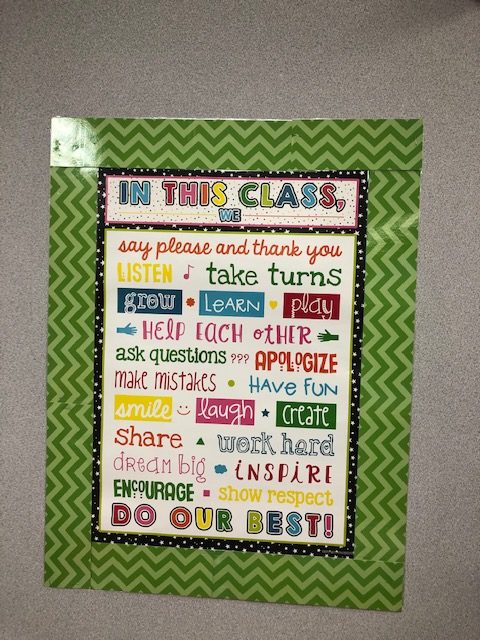 IN THIS CLASS,
WE
say please and thank you
LISTEN take turns
grow LEARN play
HELP EACH OTHER
ask questions ??? APOLOGIZE
make mistakes HAVE FUN
smile laugh create
share work hard
dream big INSPIRE
ENCOURAGE show respect
DO OUR BEST!